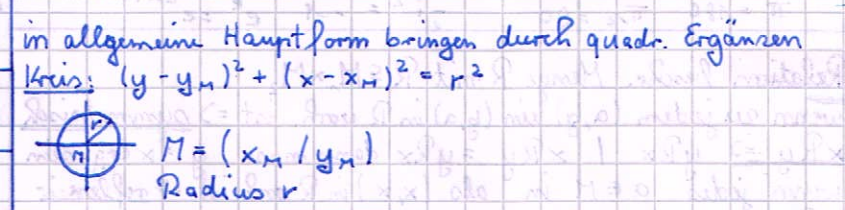 in allgemeine Hauptform bringen durch quadr. Ergänzen
Kreis: (y - y_M)² + (x - x_M)² = r²
r
M
M = (x_M / y_M)
Radius r